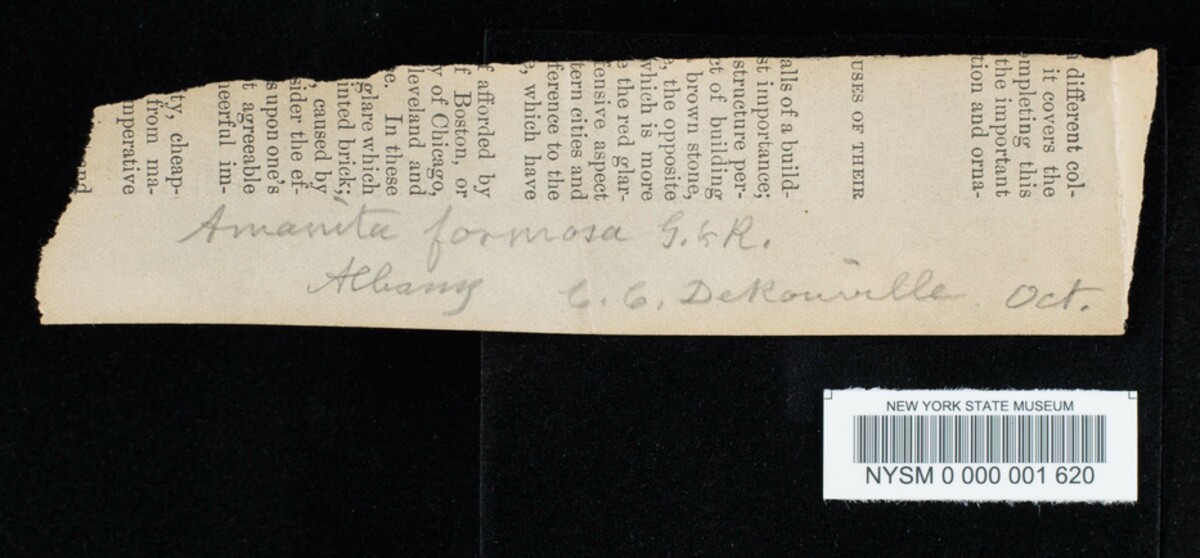 different col-
it covers the
mpleting this
the important
tion and orna-
USES OF THEIR
alls of a build-
st importance;
structure per-
ct of building
brown stone,
, the opposite
which is more
e the red glar-
fensive aspect
tern cities and
ference to the
e, which have
f afforded by
f Boston, or
y of Chicago,
leveland and
e. In these
glare which
inted brick;
, caused by
sider the ef-
s upon one's
t agreeable
heerful im-
ty, cheap-
from ma-
mperative
and
Amanita formosa G. & R.
Albany C. C. DeRouville Oct.
NEW YORK STATE MUSEUM
NYSM 0 000 001 620